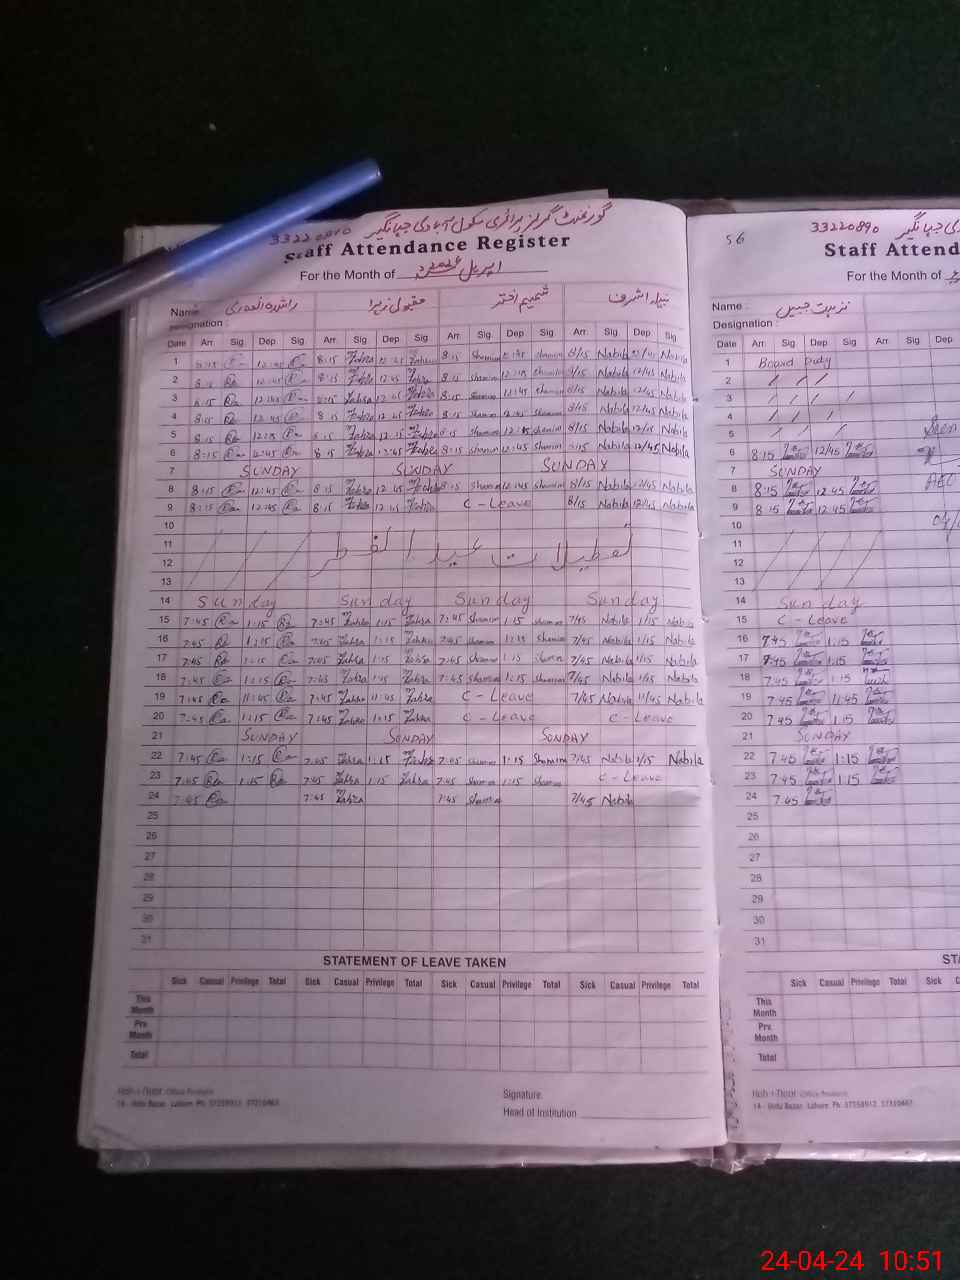 گورنمنٹ گرلز پرائمری سکول آبادی جہانگیر
Staff Attendance Register
For the Month of اپریل
Name: مقبول زہرا شمیم اختر نبیلہ اشرف
Designation :
Date Arr. Sig. Dep Sig. Arr. Sig. Dep Sig. Arr. Sig. Dep Sig. Arr. Sig. Dep Sig.
1 8:15 12:45 8:15 Zahra 12:45 Zahra 8:15 Shamim 12:45 Shamim 8/15 Nabila 12/45 Nabila
2 8:15 12:45 8:15 Zahra 12:45 Zahra 8:15 Shamim Shamim 8/15 Nabila 12/45 Nabila
3 8:15 12:45 8:15 Zahra 12:45 Zahra 8:15 Shamim 12:45 Shamim 8/15 Nabila 12/45 Nabila
4 8:15 12:45 8:15 Zahra 12:45 Zahra 8:15 Shamim 12:45 Shamim 8/15 Nabila 12/45 Nabila
5 8:15 12:15 8:15 Zahra 12:15 Zahra 8:15 Shamim 12:15 Shamim 8/15 Nabila 12/15 Nabila
6 8:15 12:45 8:15 Zahra 12:45 Zahra 8:15 Shamim 12:45 Shamim Nabila 12/45 Nabila
7 SUNDAY SUNDAY SUNDAY
8 8:15 12:45 8:15 Zahra 12:45 Zahra 8:15 Shamim 12:45 Shamim 8/15 Nabila 12/45 Nabila
9 8:15 12:45 8:15 Zahra 12:45 Zahra C - Leave 8/15 Nabila 12/45 Nabila
10
11
تعطیلات عید الفطر
12
13
14 Sunday Sunday Sunday Sunday
15 7:45 1:15 7:45 Zahra 1:15 Zahra 7:45 Shamim 1:15 Shamim 7/45 Nabila 1/15 Nabila
16 7:45 1:15 7:45 Zahra 1:15 Zahra 7:45 Shamim 1:15 Shamim 7/45 Nabila 1/15 Nabila
17 7:45 1:15 7:45 Zahra 1:15 Zahra 7:45 Shamim 1:15 Shamim 7/45 Nabila 1/15 Nabila
18 7:45 1:15 7:45 Zahra 1:15 Zahra 7:45 Shamim 1:15 Shamim 7/45 Nabila 1/15 Nabila
19 7:45 11:45 7:45 Zahra 11:45 Zahra C - Leave 7/45 Nabila 11/45 Nabila
20 7:45 1:15 7:45 Zahra 1:15 Zahra C - Leave C - Leave
21 SUNDAY SUNDAY SUNDAY
22 7:45 1:15 7:45 Zahra 1:15 Zahra 7:45 Shamim 1:15 Shamim 7/45 Nabila 1/15 Nabila
23 7:45 1:15 7:45 Zahra 1:15 Zahra 7:45 Shamim 1:15 Shamim C - Leave
24 7:45 7:45 Zahra 7:45 Shamim 7/45 Nabila
25
26
27
28
29
30
31
STATEMENT OF LEAVE TAKEN
Sick Casual Privilege Total Sick Casual Privilege Total Sick Casual Privilege Total Sick Casual Privilege Total
This Month
Prv. Month
Total
Signature
Head of Institution
14 - Urdu Bazar, Lahore
56 33220890
Staff Attend
For the Month of
Name : نزہت جبیں
Designation :
Date Arr. Sig. Dep Sig. Arr. Sig. Dep
1 Board Duty
2
3
4
5
6 8:15 12/45
7 SUNDAY
8 8:15 12:45
AEO
9 8:15 12:45
10
11
12
13
14 Sunday
15 C - Leave
16 7:45 1:15
17 7:45 1:15
18 7:45 1:15
19 7:45 11:45
20 7:45 1:15
21 SUNDAY
22 7:45 1:15
23 7:45 1:15
24 7:45
25
26
27
28
29
30
31
STA
Sick Casual Privilege Total Sick
This Month
Prv. Month
Total
14 - Urdu Bazar, Lahore
24-04-24 10:51